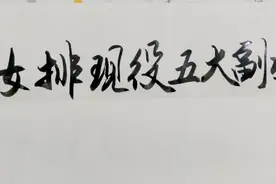 女排现役五大副